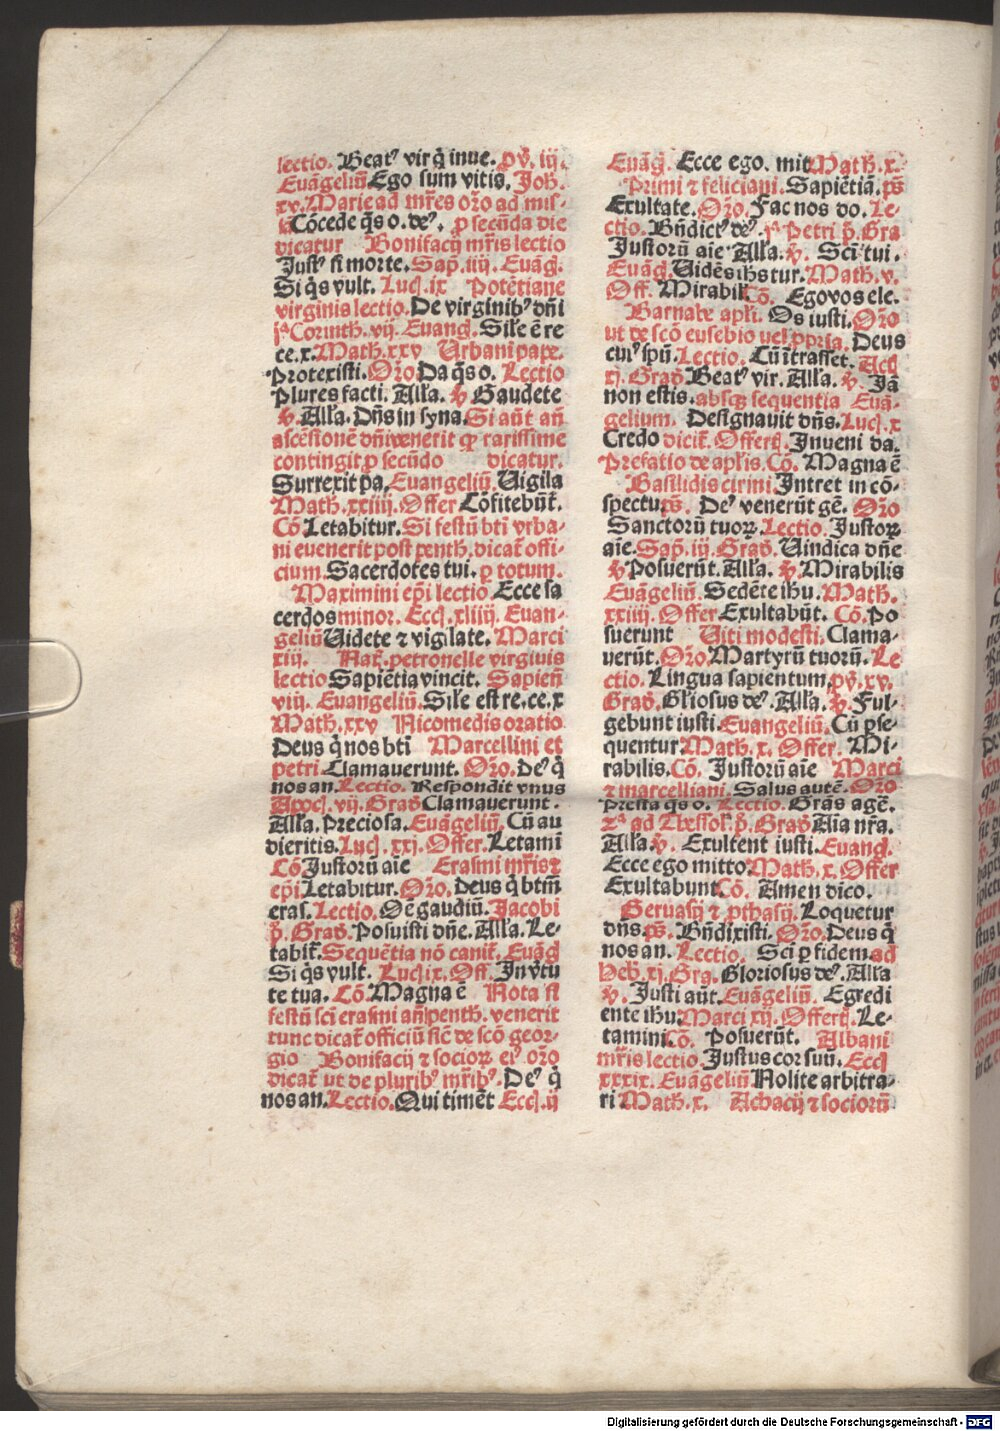 lectio. Beatꝰ vir q̄ inue. ꝓv̄. iij.
Euāgeliū Ego sum vitis. Joh.
xv. Marie ad mr̄es oro ad mis-
sā Cōcede q̄s o. deꝰ. ꝑ secūda die
dicatur Bonifacij mr̄is lectio
Justꝰ si morte. Sap̄. iiij. Euāḡ.
Si q̄s vult. Luc̄. ix Potētiane
virginis lectio. De virginibꝰ dn̄i
jᵃ Corinth. vij. Euang. Sil̄e ē re
ce. x. Math. xxv Urbani pape.
Protexisti. Oro Da q̄s o. Lectio
Plures facti. All̄a. v̄ Gaudete
v̄. All̄a. Dn̄s in syna. Si aūt an̄
ascēsionē dn̄i venerit qꝛ rarissime
contingit ꝑ secūdo dicatur.
Surrexit pa. Euangeliū. Uigila
Math. xxiiij. Offer Cōfitebūt̄.
Cō Letabitur. Si festū bt̄i vrba-
ni euenerit post penth. dicat̄ offi-
cium. Sacerdotes tui. ꝑ totum.
Maximini ep̄i lectio Ecce sa
cerdos minor. Ecc̄. xliiij. Euan-
geliū Uidete ⁊ vigilate. Marci
xiij. Nat̄. petronelle virginis
lectio Sapiētia vincit. Sapien̄
viij. Euangeliū. Sil̄e est re. ce. x
Math. xxv Nicomedis oratio
Deus q̄ nos bt̄i Marcellini et
petri Clamauerunt. Oro. Deꝰ q̄
nos an. Lectio. Respondit vnus
Apoc̄. vij. Grad̄ Clamauerunt.
All̄a. Preciosa. Euāgeliū. Cū au
dieritis. Luc̄. xxj. Offer. Letami
Cō Justorū aīe Erasmi mr̄is ⁊
ep̄i Letabitur. Oro. Deus q̄ btm̄
eras. Lectio. Oē gaudiū. Jacobi
p̄. Grad̄. Posuisti dn̄e. All̄a. Le-
tabit̄. Sequētia nō canit̄. Euāg
Si q̄s vult. Luc̄ ix. Off. In v̄tu
te tua. Cō. Magna ē Nota si
festū sci erasmi an̄ penth. venerit
tunc dicat̄ officiū sic̄ de scō geor-
gio Bonifacij ⁊ sociorꝝ eiꝰ oro
dicat̄ ut de pluribꝰ mr̄ibꝰ. Deꝰ q̄
nos an. Lectio. Qui timēt Ecc̄. ij
Euāḡ. Ecce ego. mit Math. x.
Primi ⁊ feliciani. Sapiētiā. ps̄
Exultate. Oro. Fac nos do. Le-
ctio. Bn̄dictꝰ deꝰ. jᵃ Petri p̄. Gra
Justorū aīe All̄a. v̄. Sci tui.
Euāḡ. Uidēs ihs tur. Math. v.
Off. Mirabil Cō. Ego vos ele.
Barnabe apl̄i. Os iusti. Oro
ut de scō eusebio uel ꝓpria. Deus
cuiꝰ spū. Lectio. Cū ītrasset. Act̄
xj. Grad̄ Beatꝰ vir. All̄a. v̄. Jā
non estis. absqꝫ sequentia Euā-
gelium. Designauit dn̄s. Luc̄. x
Credo dicit̄. Offert̄. Inueni da.
Prefatio de apl̄is. Cō. Magna ē
Basilidis cirini Intret in cō-
spectu ps̄. Deꝰ venerūt gē. Oro
Sanctorū tuorꝝ. Lectio. Justorꝝ
aīe. Sap̄. iij. Grad̄. Uindica dn̄e
v̄ Posuerūt. All̄a. v̄ Mirabilis
Euāgeliū. Sedēte ihu. Math.
xxiiij. Offer Exultabūt. Cō. Po
suerunt Uiti modesti. Clama-
uerūt. Oro Martyrū tuorū. Le
ctio. Lingua sapientum ꝓv̄. xv.
Grad̄. Gl̄iosus deꝰ. All̄a. v̄. Ful-
gebunt iusti. Euangeliū. Cū ꝑse-
quentur Math. x. Offer. Mi-
rabilis. Cō. Justorū aīe Marci
⁊ marcelliani. Salus autē. Oro
Presta q̄s o. Lectio. Gras agē.
ijᵃ ad Thessol. p̄. Grad̄ Aia nr̄a.
All̄a. v̄. Exultent iusti. Euang.
Ecce ego mitto Math. x. Offer
Exultabunt Cō. Amen dico.
Geruasij ⁊ pthasij. Loquetur
dn̄s. ps̄. Bn̄dixisti. Oro. Deus q̄
nos an. Lectio. Sci ꝑ fidem. ad
Heb̄. xj. Gra. Gloriosus deꝰ. All̄a
v̄. Justi aūt. Euāgeliū. Egredi
ente ihu. Marci xij. Offert̄. Le-
tamini Cō. Posuerūt. Albani
mr̄is lectio. Justus cor suū. Ecc̄
xxxix. Euāgeliū Nolite arbitra-
ri Math. x. Achacij ⁊ sociorū
Digitalisierung gefördert durch die Deutsche Forschungsgemeinschaft - DFG